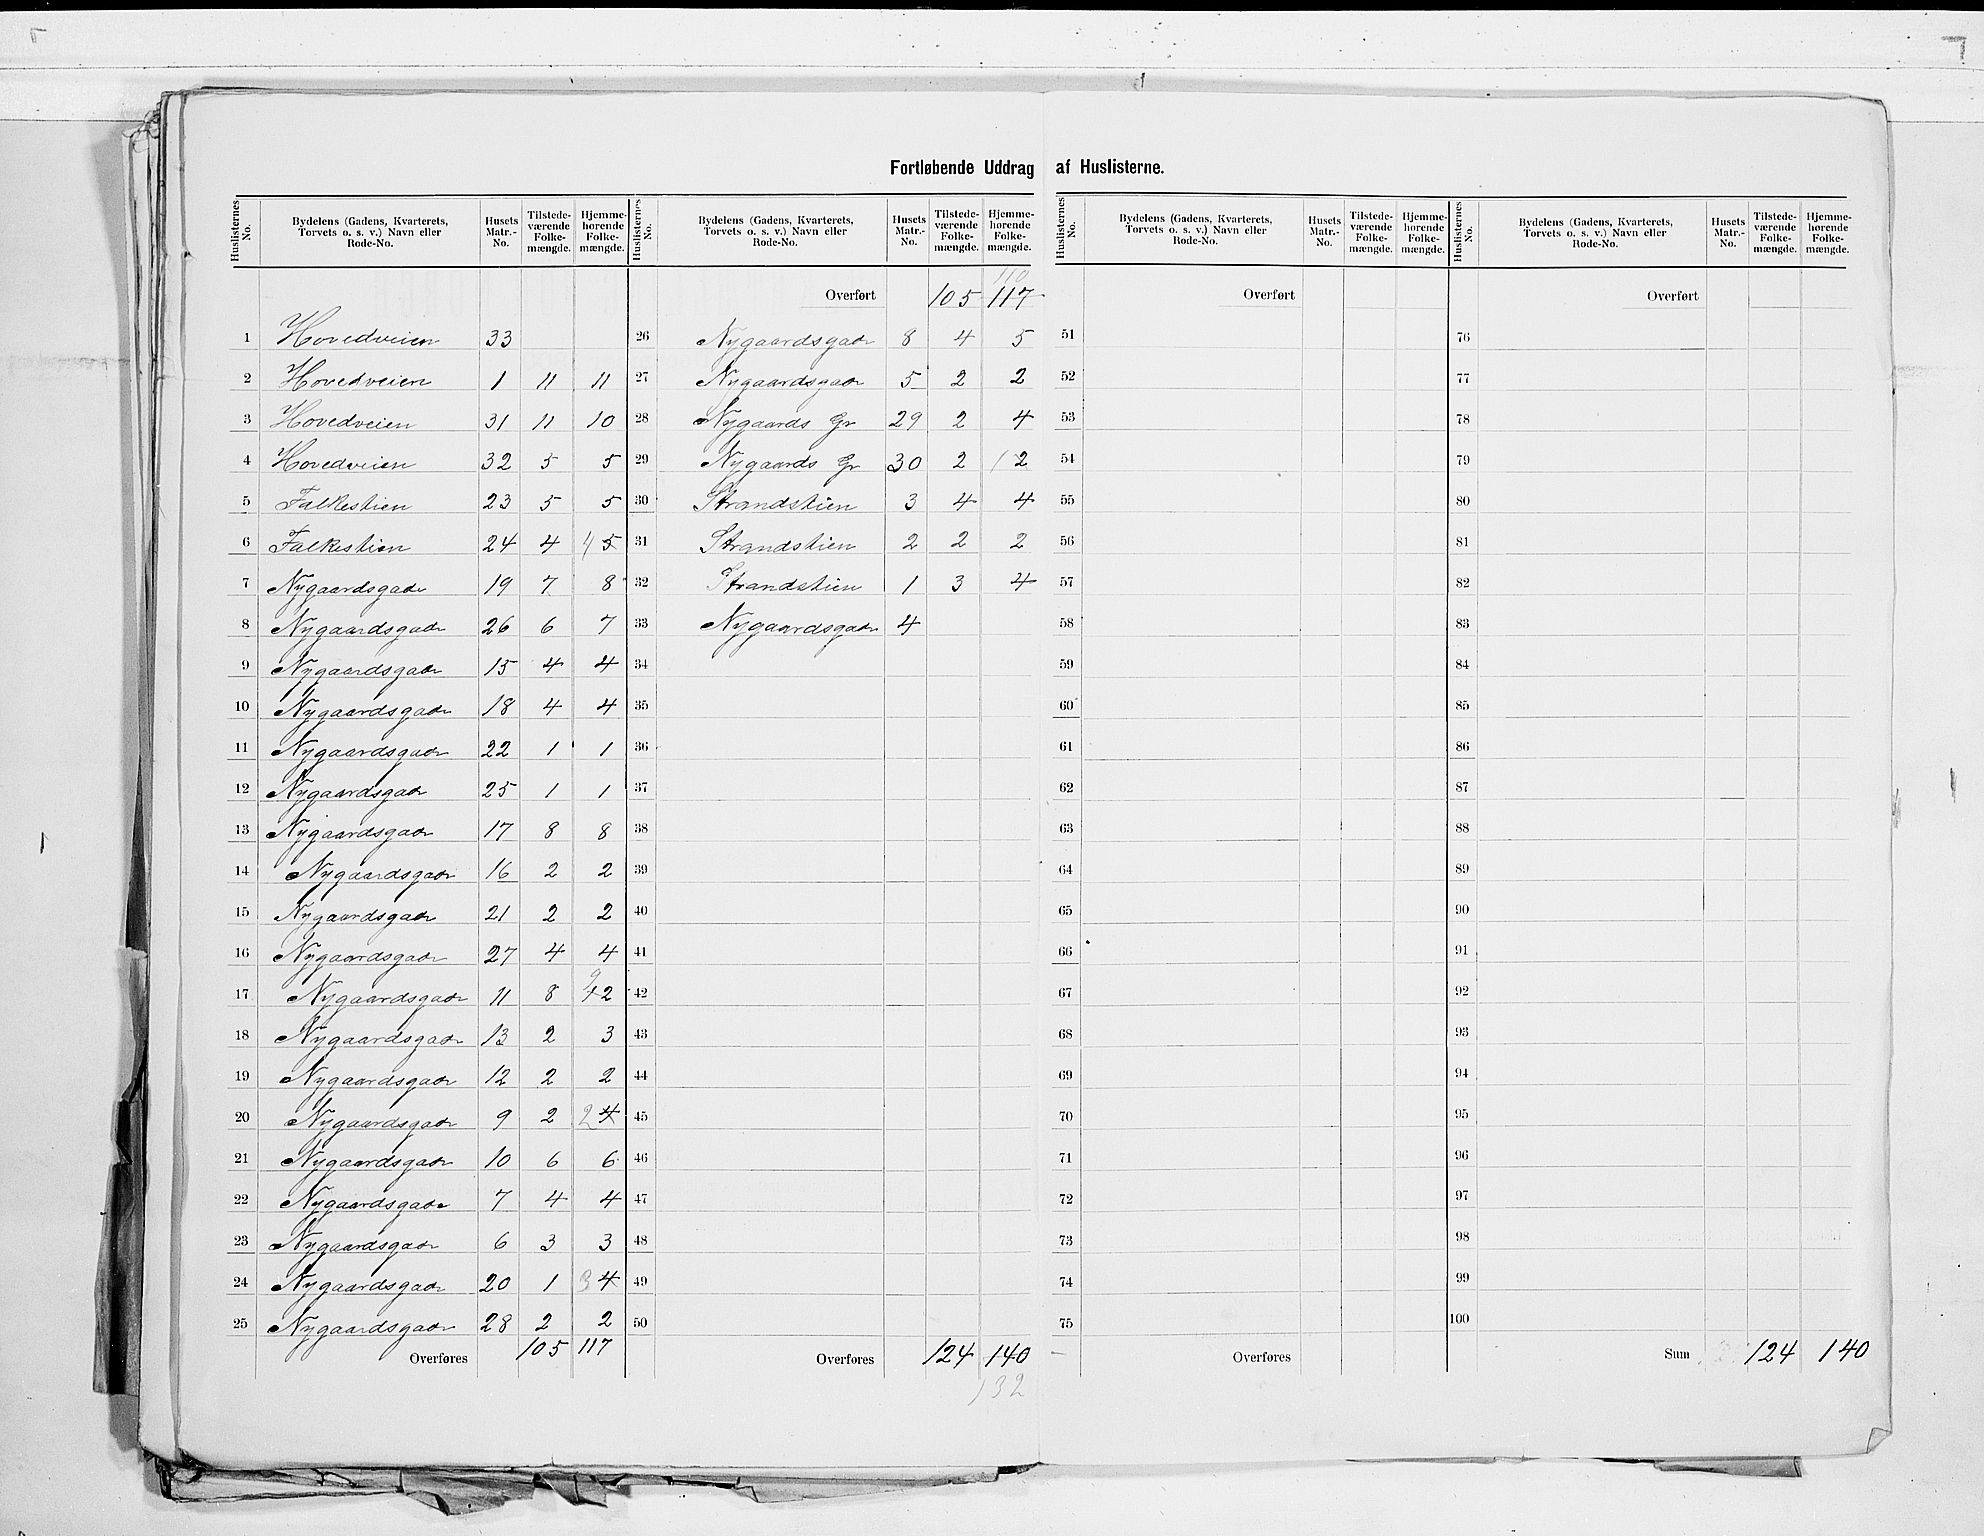 Fortløbende Uddrag af Huslisterne.
Huslisternes No. Bydelens (Gadens, Kvarterets, Torvets o. s. v.) Navn eller Rode-No. Husets Matr.-No. Tilstedeværende Folkemængde. Hjemmehørende Folkemængde.
1 Hovedveien 33
2 Hovedveien 1 11 11
3 Hovedveien 31 11 10
4 Hovedveien 32 5 5
5 Falkestien 23 5 5
6 Falkestien 24 4 4 5
7 Nygaardsgade 19 7 8
8 Nygaardsgade 26 6 7
9 Nygaardsgade 15 4 4
10 Nygaardsgade 18 4 4
11 Nygaardsgade 22 1 1
12 Nygaardsgade 25 1 1
13 Nygaardsgade 17 8 8
14 Nygaardsgade 16 2 2
15 Nygaardsgade 21 2 2
16 Nygaardsgade 27 4 4
17 Nygaardsgade 11 8 9 12
18 Nygaardsgade 13 2 3
19 Nygaardsgade 12 2 2
20 Nygaardsgade 9 2 2 4
21 Nygaardsgade 10 6 6
22 Nygaardsgade 7 4 4
23 Nygaardsgade 6 3 3
24 Nygaardsgade 20 1 3 4
25 Nygaardsgade 28 2 2
Overføres 105 117
Huslisternes No. Bydelens (Gadens, Kvarterets, Torvets o. s. v.) Navn eller Rode-No. Husets Matr.-No. Tilstedeværende Folkemængde. Hjemmehørende Folkemængde.
110
Overført 105 117
26 Nygaardsgade 8 4 5
27 Nygaardsgade 5 2 2
28 Nygaards Gr 29 2 4
29 Nygaards Gr 30 2 2
30 Strandstien 3 4 4
31 Strandstien 2 2 2
32 Strandstien 1 3 4
33 Nygaardsgade 4
34
35
36
37
38
39
40
41
42
43
44
45
46
47
48
49
50
Overføres 124 140
132
Huslisternes No. Bydelens (Gadens, Kvarterets, Torvets o. s. v.) Navn eller Rode-No. Husets Matr.-No. Tilstedeværende Folkemængde. Hjemmehørende Folkemængde.
Overført
51
52
53
54
55
56
57
58
59
60
61
62
63
64
65
66
67
68
69
70
71
72
73
74
75
Overføres
Huslisternes No. Bydelens (Gadens, Kvarterets, Torvets o. s. v.) Navn eller Rode-No. Husets Matr.-No. Tilstedeværende Folkemængde. Hjemmehørende Folkemængde.
Overført
76
77
78
79
80
81
82
83
84
85
86
87
88
89
90
91
92
93
94
95
96
97
98
99
100
Sum 124 140